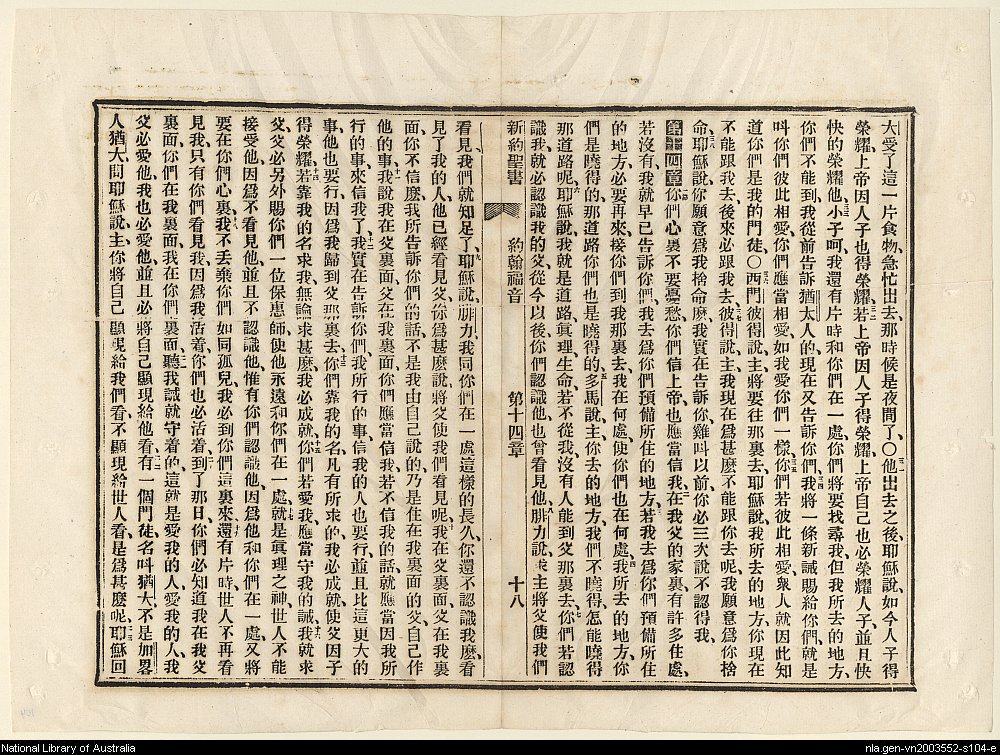 大受了這一片食物、急忙出去、那時候是夜間了、〇他出去之後、耶穌說、如今人子得
榮耀、上帝因人子也得榮耀、若上帝因人子得榮耀、上帝自己也必榮耀人子、並且快
快的榮耀他、小子呵、我還有片時和你們在一處、你們將要找尋我、但我所去的地方、
你們不能到、我從前告訴猶太人的、現在又告訴你們、我將一條新誡賜給你們、就是
叫你們彼此相愛、你們應當相愛、如我愛你們一樣、你們若彼此相愛、衆人就因此知
道你們是我的門徒、〇西門彼得說、主將要往那裏去、耶穌說、我所去的地方、你現在
不能跟我去、後來必跟我去、彼得說、主、我現在爲甚麼不能跟你去呢、我願意爲你捨
命、耶穌說、你願意爲我捨命麼、我實在告訴你、雞叫以前、你必三次說不認得我、
第十四章 你們心裏不要憂愁、你們信上帝、也應當信我、在我父的家裏、有許多住處、
若沒有、我就早已告訴你們、我去爲你們預備所住的地方、若我去爲你們預備所住
的地方、必要再來接你們到我那裏去、我在何處、使你們也在何處、我所去的地方、你
們是曉得的、那道路你們也是曉得的、多馬說、主你去的地方、我們不曉得、怎能曉得
那道路呢、耶穌說、我就是道路、眞理、生命、若不從我、沒有人能到父那裏去、你們若認
識我、就必認識我的父、從今以後、你們認識他、也曾看見他、腓力說、求主將父使我們
新約聖書 約翰福音 第十四章 十八
看見、我們就知足了、耶穌說、腓力、我同你們在一處、這樣的長久、你還不認識我麼、看
見了我的人、他已經看見父、你爲甚麼說、將父使我們看見呢、我在父裏面、父在我裏
面、你不信麼、我所告訴你們的話、不是我由自己說的、乃是住在我裏面的父、自己作
他的事、我說我在父裏面、父在我裏面、你們應當信我、若不信我的話、就應當因我所
行的事、來信我了、我實在告訴你們、我所行的事、信我的人也要行、並且比這更大的
事、他也要行、因爲我歸到父那裏去、你們靠我的名、凡有所求的、我必成就、使父因子
得榮耀、若靠我的名求我、無論求甚麼、我必成就、你們若愛我、應當守我的誡、我就求
父、父必另外賜你們一位保惠師、使他永遠和你們在一處、就是眞理之神、世人不能
接受他、因爲不看見他、並且不認識他、惟有你們認識他、因爲他和你們在一處、又將
要在你們心裏、我不丟棄你們如同孤兒、我必到你們這裏來、還有片時、世人不再看
見我、只有你們看見我、因爲我活着、你們也必活着、到了那日、你們必知道我在我父
裏面、你們在我裏面、我在你們裏面、聽我誡就守着的、這就是愛我的人、愛我的人、我
父必愛他、我也必愛他、並且必將自己顯現給他看、有一個門徒、名叫猶大、不是加畧
人猶大、問耶穌說、主、你將自己顯現給我們看、不顯現給世人看、是爲甚麼呢、耶穌回
National Library of Australia
nla.gen-vn2003552-s104-e